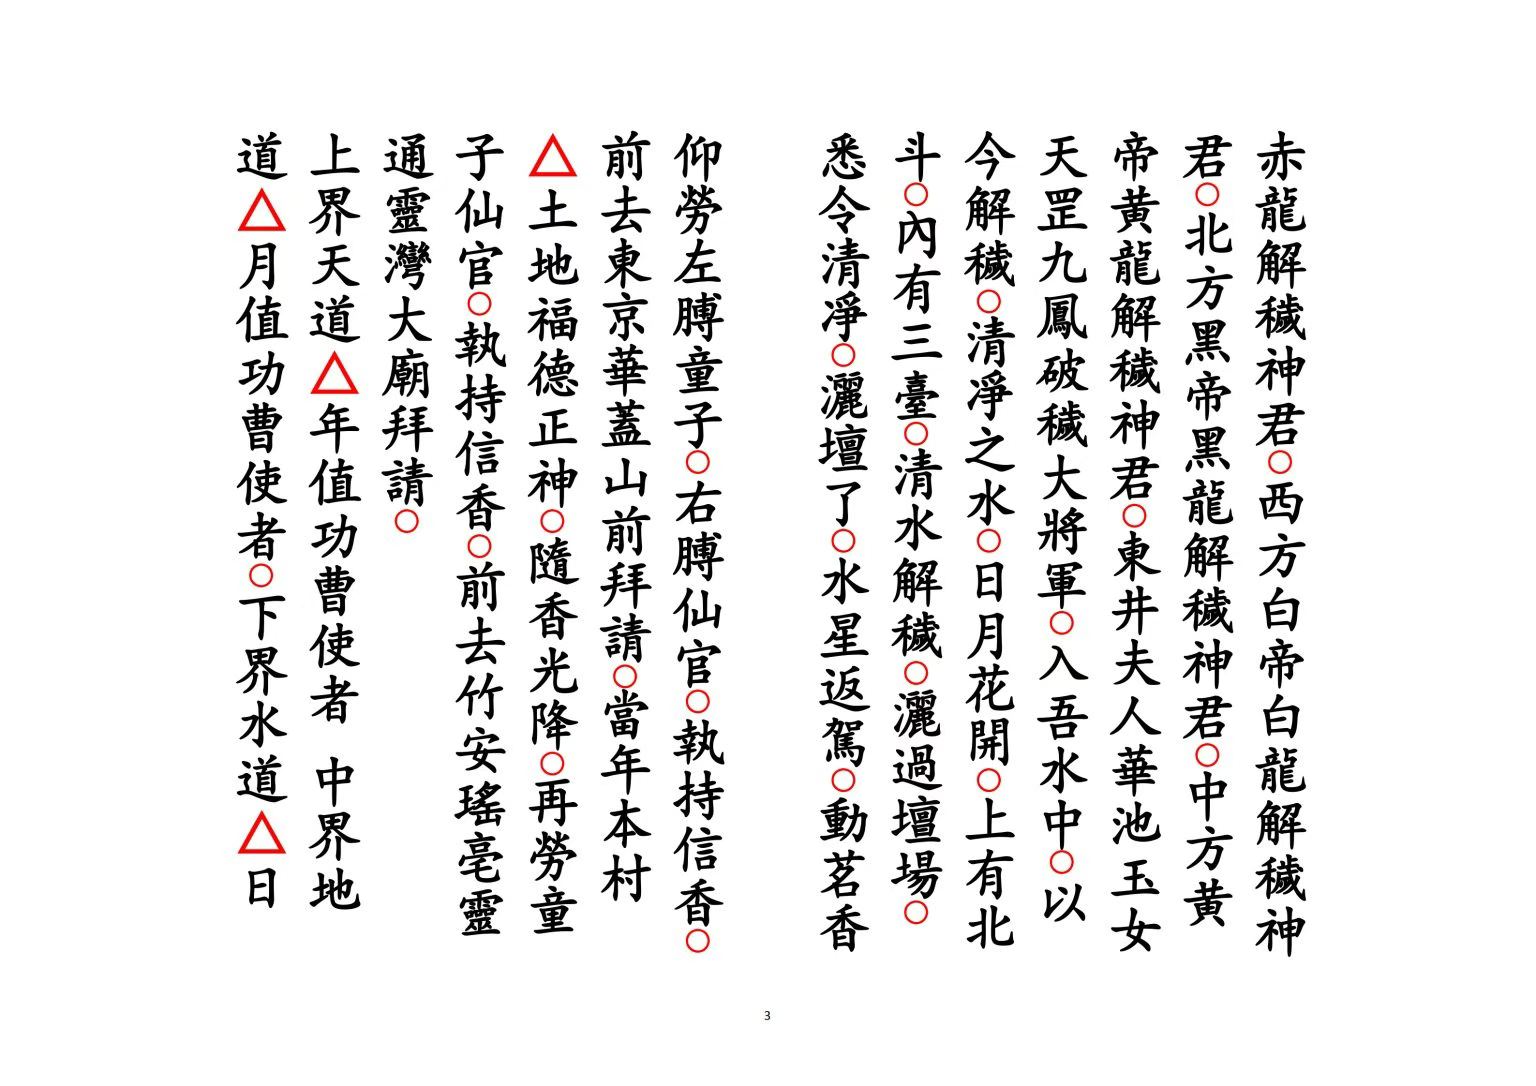 赤龍解穢神君○西方白帝白龍解穢神
君○北方黑帝黑龍解穢神君○中方黃
帝黃龍解穢神君○東井夫人華池玉女
天罡九鳳破穢大將軍○入吾水中○以
今解穢○清凈之水○日月花開○上有北
斗○內有三臺○清水解穢○灑過壇場○
悉令清凈○灑壇了○水星返駕○動茗香
仰勞左膊童子○右膊仙官○執持信香○
前去東京華蓋山前拜請○當年本村
△土地福德正神○隨香光降○再勞童
子仙官○執持信香○前去竹安瑤亳靈
通靈灣大廟拜請○
上界天道△年值功曹使者 中界地
道△月值功曹使者○下界水道△日
3